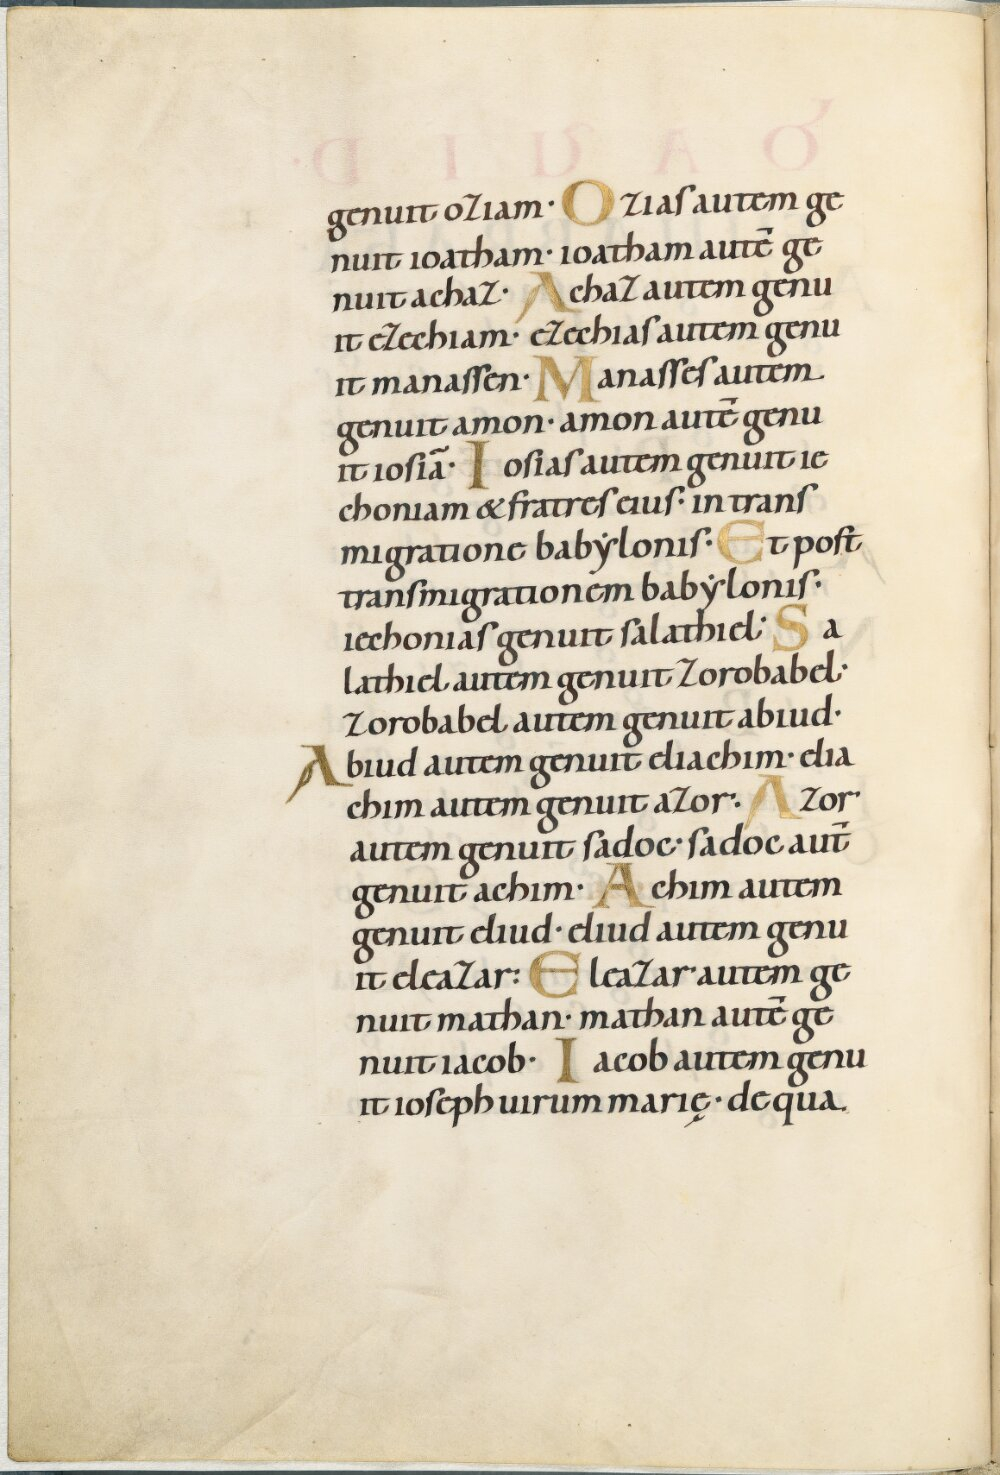 genuit oziam· Ozias autem ge
nuit ioatham· ioatham autē ge
nuit achaz· Achaz autem genu
it ezechiam· ezechias autem genu
it manassen· Manasses autem
genuit amon· amon autē genu
it iosiā· Iosias autem genuit ie
choniam & fratres eius· in trans
migratione babẏlonis· Et post
transmigrationem babẏlonis·
iechonias genuit salathiel· Sa
lathiel autem genuit zorobabel·
zorobabel autem genuit abiud·
Abiud autem genuit eliachim· elia
chim autem genuit azor· Azor
autem genuit sadoc· sadoc aut̄
genuit achim· Achim autem
genuit eliud· eliud autem genu
it eleazar: Eleazar autem ge
nuit mathan· mathan autē ge
nuit iacob· Iacob autem genu
it ioseph uirum marię· de qua